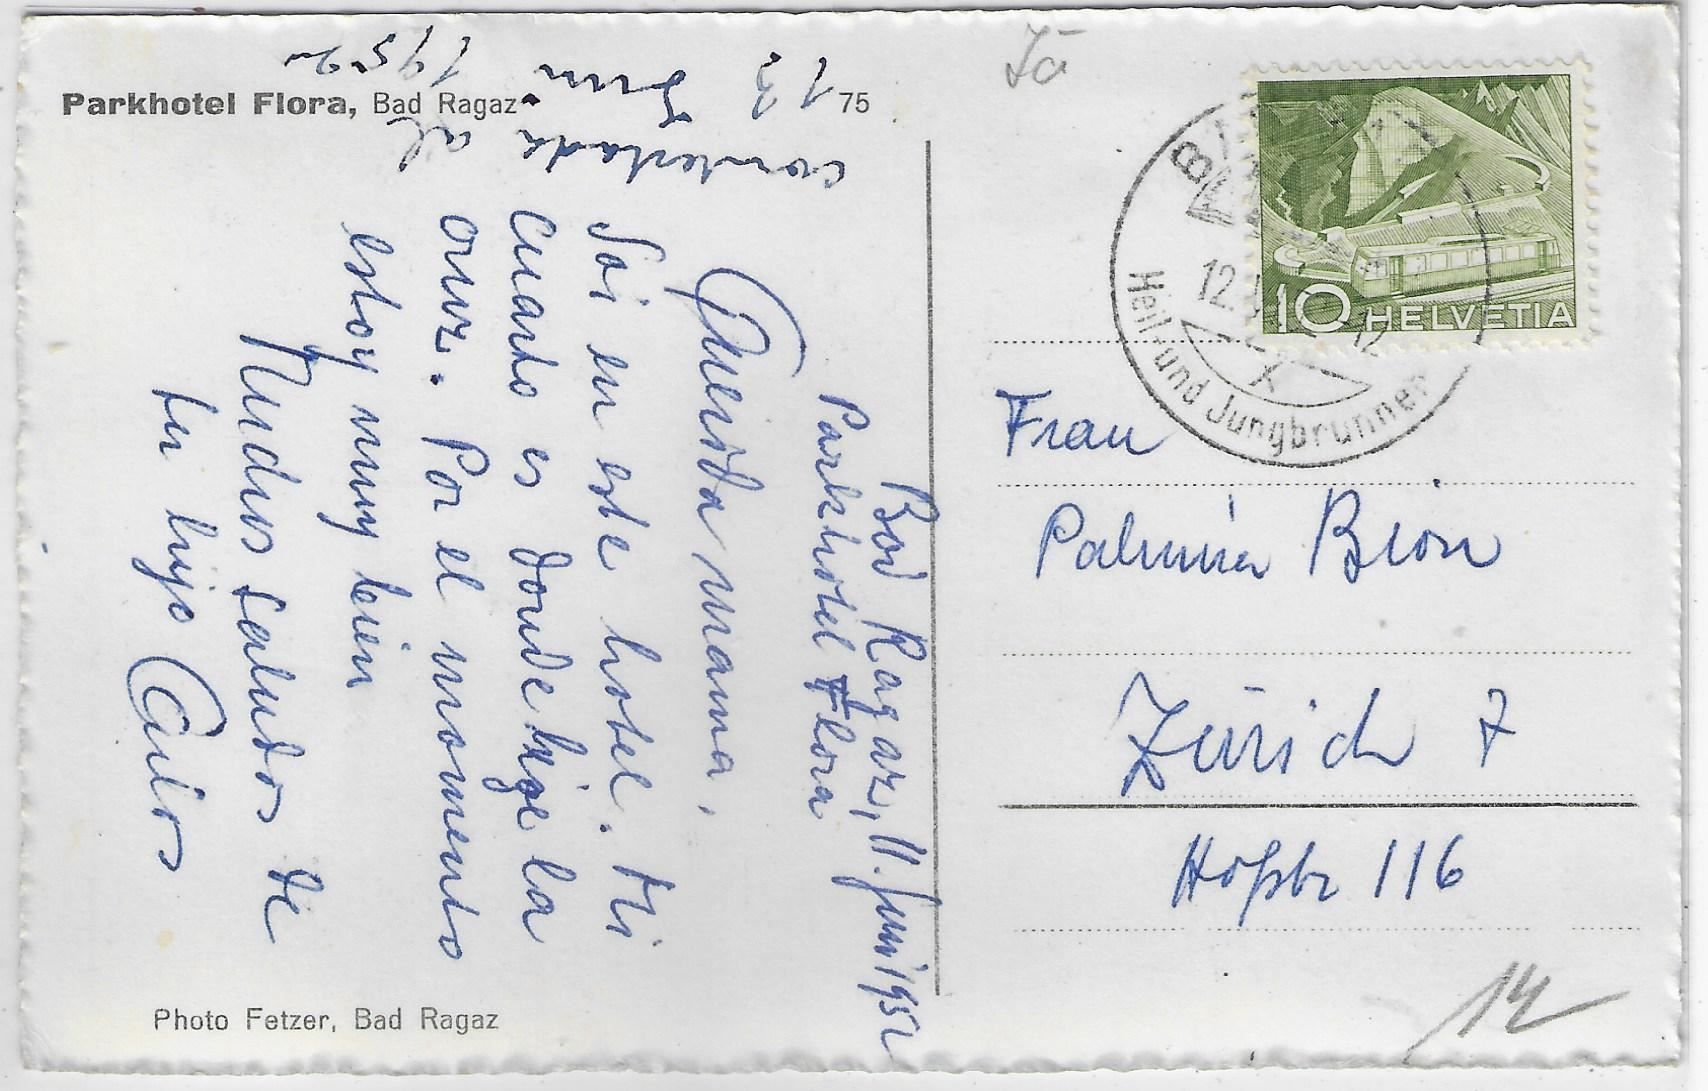 Parkhotel Flora, Bad Ragaz.
75
contestada al
13 Juni 1952
Bad Ragaz, 11. Juni 1952
Parkhotel Flora
Querida mama,
Soi en este hotel. Mi
cuarto es donde hize la
cruz. Por el momento
estoy muy bien
Mudios saludos de
tu hijo Carlos
Photo Fetzer, Bad Ragaz
Jä
10 HELVETIA
BA
12.
Heil- und Jungbrunnen
X
Frau
Palmira Bion
Zürich 7
Hofstr 116
14